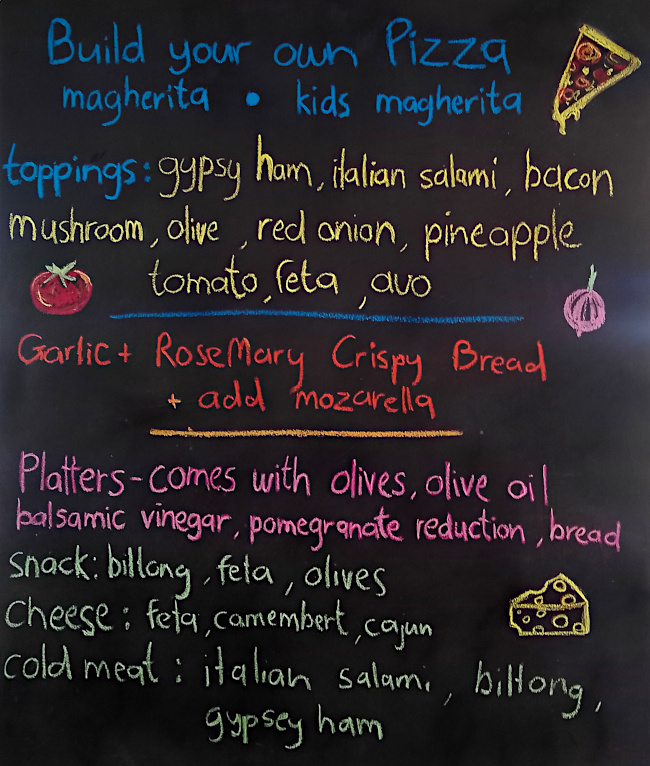 Build your own Pizza
magherita • kids magherita
toppings: gypsy ham, italian salami, bacon
mushroom, olive , red onion, pineapple
tomato, feta , avo
Garlic + RoseMary Crispy Bread
+ add mozarella
Platters - comes with olives, olive oil
balsamic vinegar, pomegranate reduction , bread
snack: biltong , feta , olives
Cheese : feta , camembert , cajun
cold meat : italian salami , biltong ,
gypsey ham